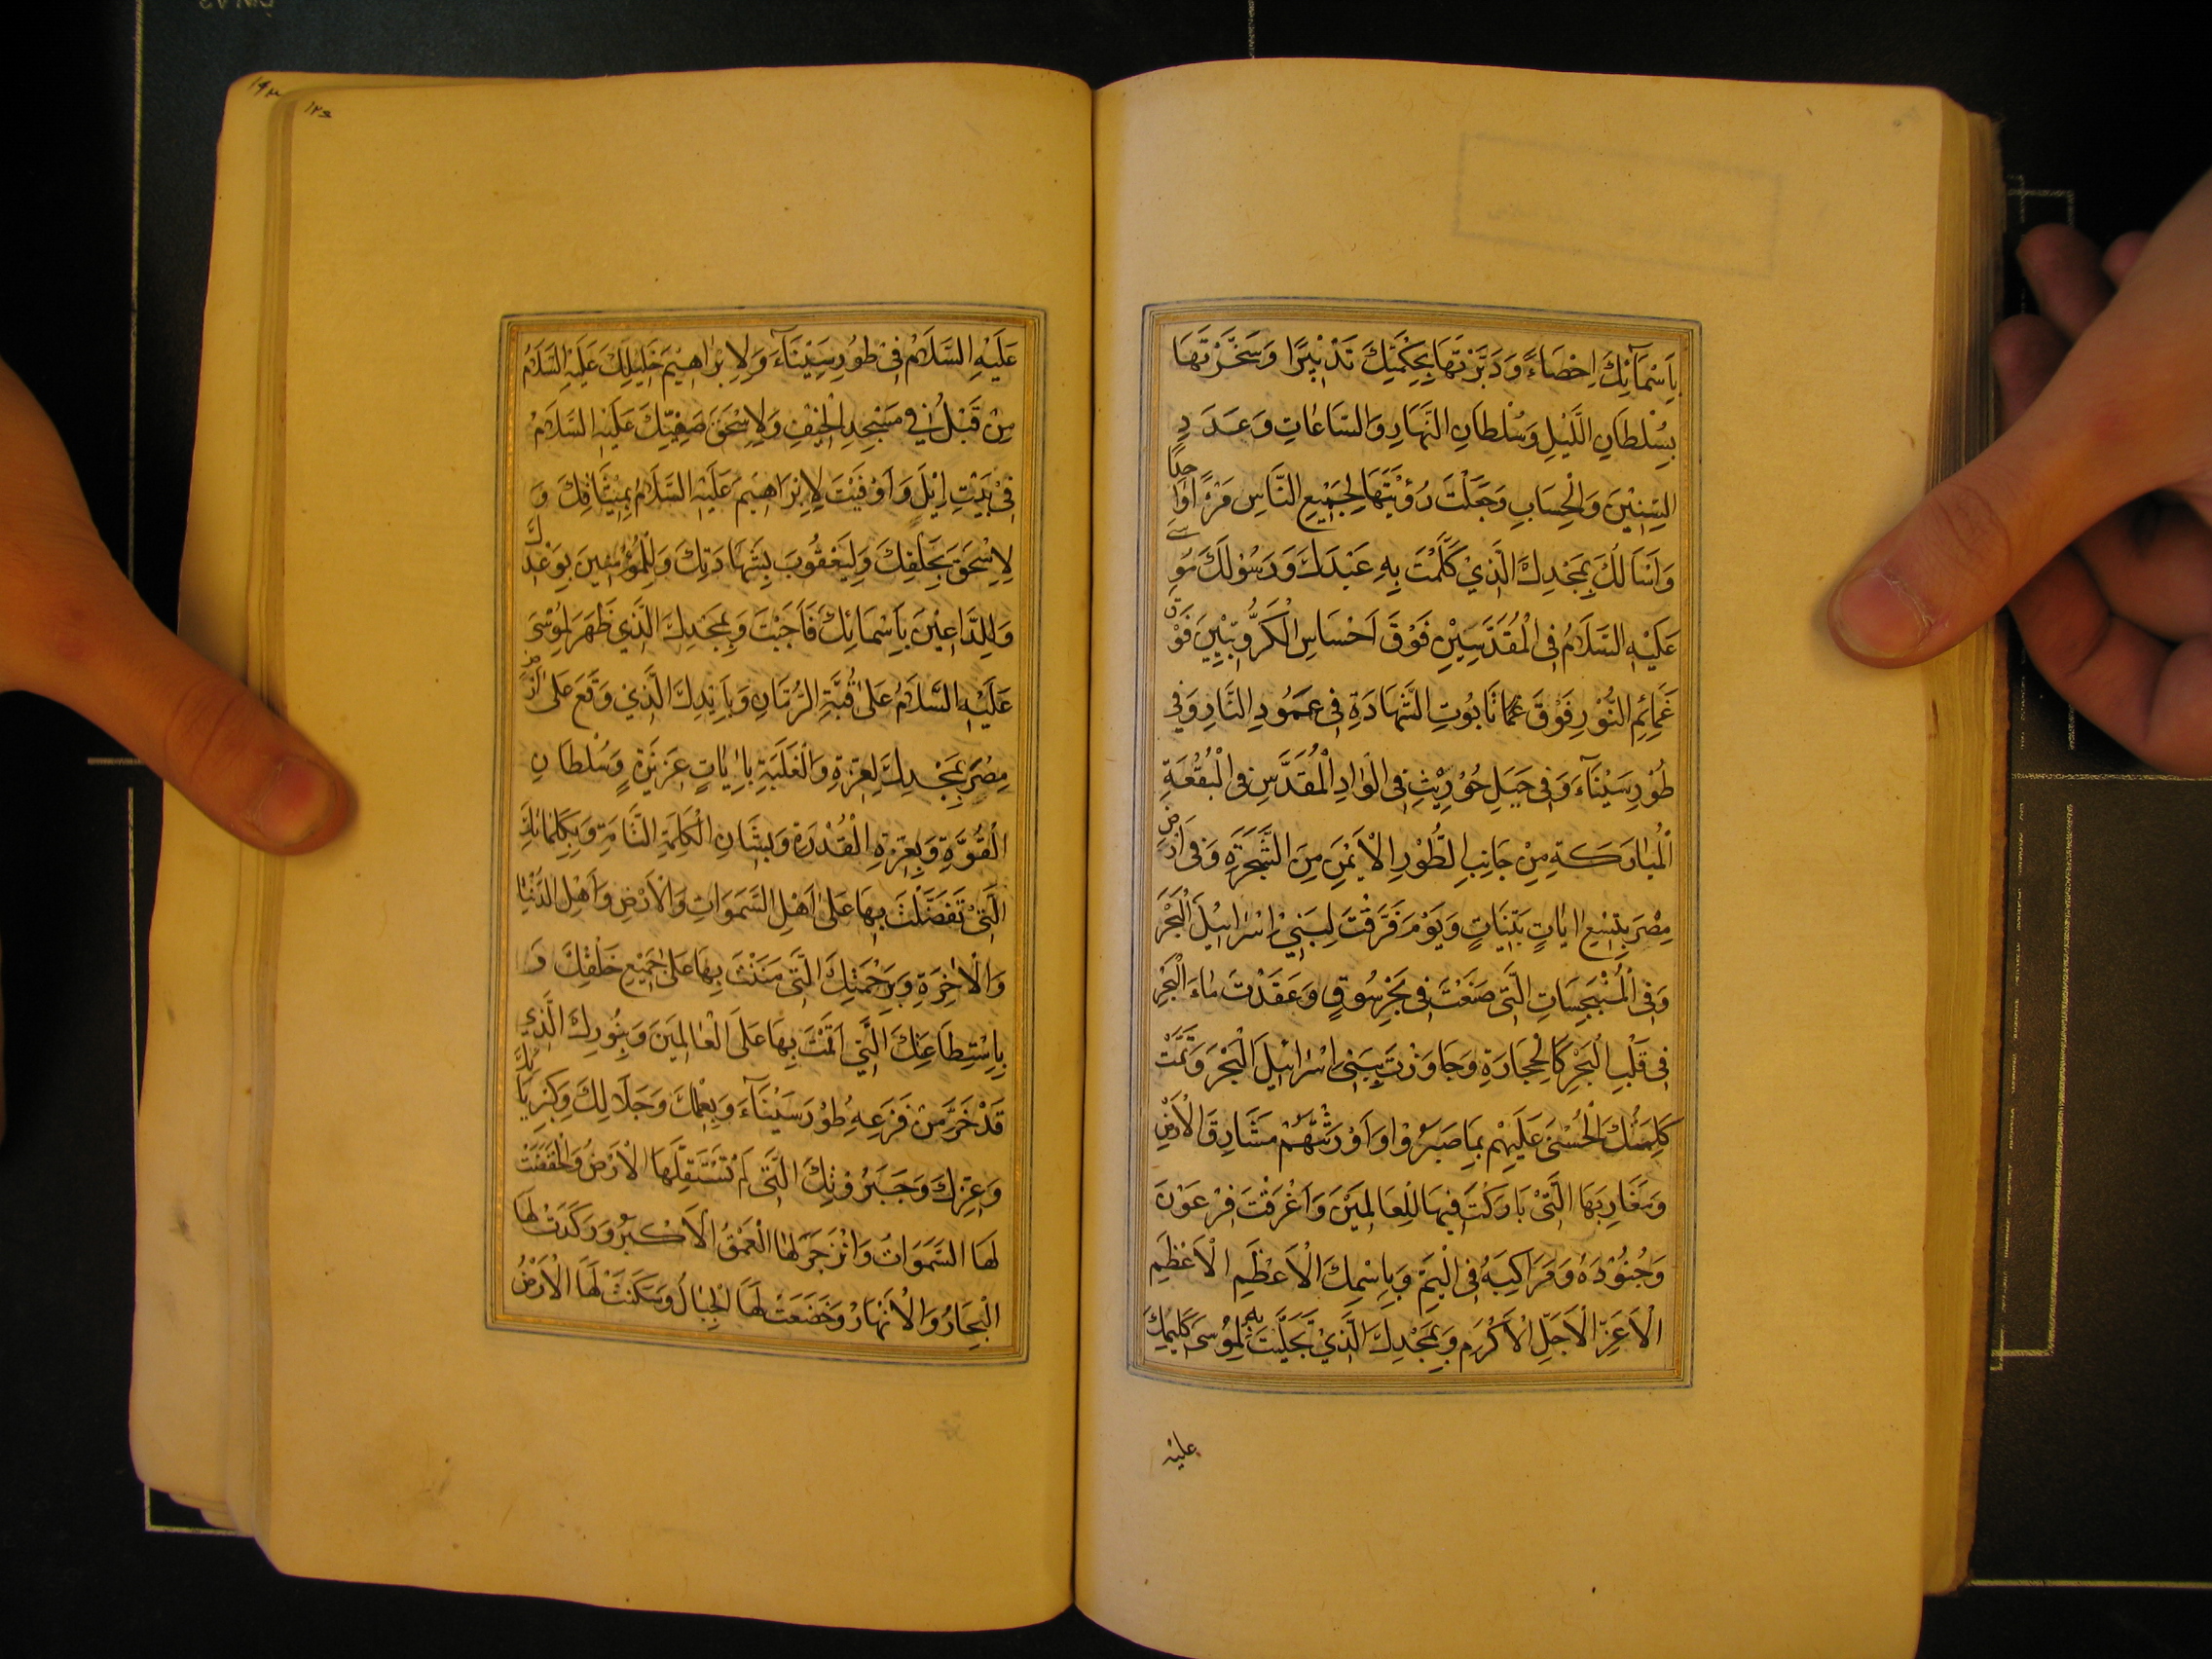 بِاَسْمَآئِكَ اِحْصَاءً وَدَبَّرْتَهَا بِحِكْمَتِكَ تَدْبِيرًا وَسَخَّرْتَهَا
بِسُلْطَانِ اللَّيْلِ وَسُلْطَانِ النَّهَارِ وَالسَّاعَاتِ وَعَدَدِ
السِّنِيْنَ وَالْحِسَابِ وَجَعَلْتَ رُؤْيَتَهَا لِجَمِيْعِ النَّاسِ مَرْاً وَاحِدًا
وَاَسْاَلُكَ بِمَجْدِكَ الَّذِيْ كَلَّمْتَ بِهِ عَبْدَكَ وَرَسُوْلَكَ مُوسَى
عَلَيْهِ السَّلَامُ فِي الْمُقَدَّسِيْنِ فَوْقَ اَحْسَاسِ الْكَرُّوبِيِّينَ فَوْقَ
غَمَائِمِ النُّوْرِ فَوْقَ تَابُوتِ الشَّهَادَةِ فِي عَمُودِ النَّارِ وَفِي
طُوْرِ سَيْنَآءَ وَفِي جَبَلِ حُوْرِيْثٍ فِي الْوَادِ الْمُقَدَّسِ فِي الْبُقْعَةِ
الْمُبَارَكَةِ مِنْ جَانِبِ الطُّوْرِ الْاَيْمَنِ مِنَ الشَّجَرَةِ وَفِي اَرْضِ
مِصْرَ بِتِسْعِ اٰيَاتٍ بَيِّنَاتٍ وَيَوْمَ فَرَقْتَ لِبَنِيْ اِسْرَائِيْلَ الْبَحْرَ
وَفِي الْمُنْبَجِسَاتِ الَّتِي صَنَعْتَ فِي بَحْرِ سُوْفٍ وَعَقَدْتَ مَاءَ الْبَحْرِ
فِي قَلْبِ الْبَحْرِ كَالْحِجَارَةِ وَجَاوَزْتَ بِبَنِي اِسْرَائِيْلَ الْبَحْرَ وَتَمَّتْ
كَلِمَتُكَ الْحُسْنَى عَلَيْهِمْ بِمَا صَبَرُوْا وَاَوْرَثْتَهُمْ مَشَارِقَ الْاَرْضِ
وَمَغَارِبَهَا الَّتِيْ بَارَكْتَ فِيْهَا لِلْعَالَمِيْنَ وَاَغْرَقْتَ فِرْعَوْنَ
وَجُنُوْدَهُ وَمَرَاكِبَهُ فِي الْيَمِّ وَبِاسْمِكَ الْاَعْظَمِ الْاَعْظَمِ
الْاَعَزِّ الْاَجَلِّ الْاَكْرَمِ وَبِمَجْدِكَ الَّذِيْ تَجَلَّيْتَ بِهِ لِمُوسَى كَلِيْمِكَ
عليه
عَلَيْهِ السَّلَامُ فِيْ طُوْرِ سَيْنَآءَ وَلِاِبْرَاهِيْمَ خَلِيْلِكَ عَلَيْهِ السَّلَامُ
مِنْ قَبْلُ فِي مَسْجِدِ الْخَيْفِ وَلِاِسْحٰقَ صَفِيِّكَ عَلَيْهِ السَّلَامُ
فِيْ بَيْتِ اِيْلَ وَاَوْفَيْتَ لِاِبْرَاهِيْمَ عَلَيْهِ السَّلَامُ بِمِيْثَاقِكَ وَ
لِاِسْحٰقَ بِحَلْفِكَ وَلِيَعْقُوْبَ بِشَهَادَتِكَ وَلِلْمُؤْمِنِينَ بِوَعْدِكَ
وَلِلدَّاعِيْنَ بِاَسْمَائِكَ فَاَجَبْتَ وَبِمَجْدِكَ الَّذِي ظَهَرَ لِمُوْسَى
عَلَيْهِ السَّلَامُ عَلٰى قُبَّةِ الرُّمَّانِ وَبِاَيْدِكَ الَّذِي وَقَعَ عَلٰى اَرْضِ
مِصْرَ بِمَجْدِكَ لِعِزَّةِ وَالْغَلَبَةِ بِاٰيَاتٍ عَزِيْزَةٍ وَسُلْطَانِ
الْقُوَّةِ وَبِعِزَّةِ الْقُدْرَةِ وَبِشَانِ الْكَلِمَةِ التَّامَّةِ وَبِكَلِمَاتِكَ
الَّتِيْ تَفَضَّلْتَ بِهَا عَلٰى اَهْلِ السَّمٰوَاتِ وَالْاَرْضِ وَاَهْلِ الدُّنْيَا
وَالْاٰخِرَةِ وَبِرَحْمَتِكَ الَّتِي مَنَنْتَ بِهَا عَلٰى جَمِيْعِ خَلْقِكَ وَ
بِاِسْتِطَاعَتِكَ الَّتِي اَقَمْتَ بِهَا عَلَى الْعٰالَمِيْنَ وَبِنُورِكَ الَّذِي
قَدْ خَرَّ مِنْ فَزَعِهِ طُوْرُ سَيْنَآءَ وَبِعِلْمِكَ وَجَلَالِكَ وَكِبْرِيَائِكَ
وَعِزَّتِكَ وَجَبَرُوْتِكَ الَّتِي لَمْ تَسْتَقِلَّهَا الْاَرْضُ وَانْخَفَضَتْ
لَهَا السَّمٰوَاتُ وَانْزَجَرَ لَهَا الْعُمْقُ الْاَكْبَرُ وَرَكَدَتْ لَهَا
الْبِحَارُ وَالْاَنْهَارُ وَخَضَعَتْ لَهَا الْجِبَالُ وَسَكَنَتْ لَهَا الْاَرْضُ